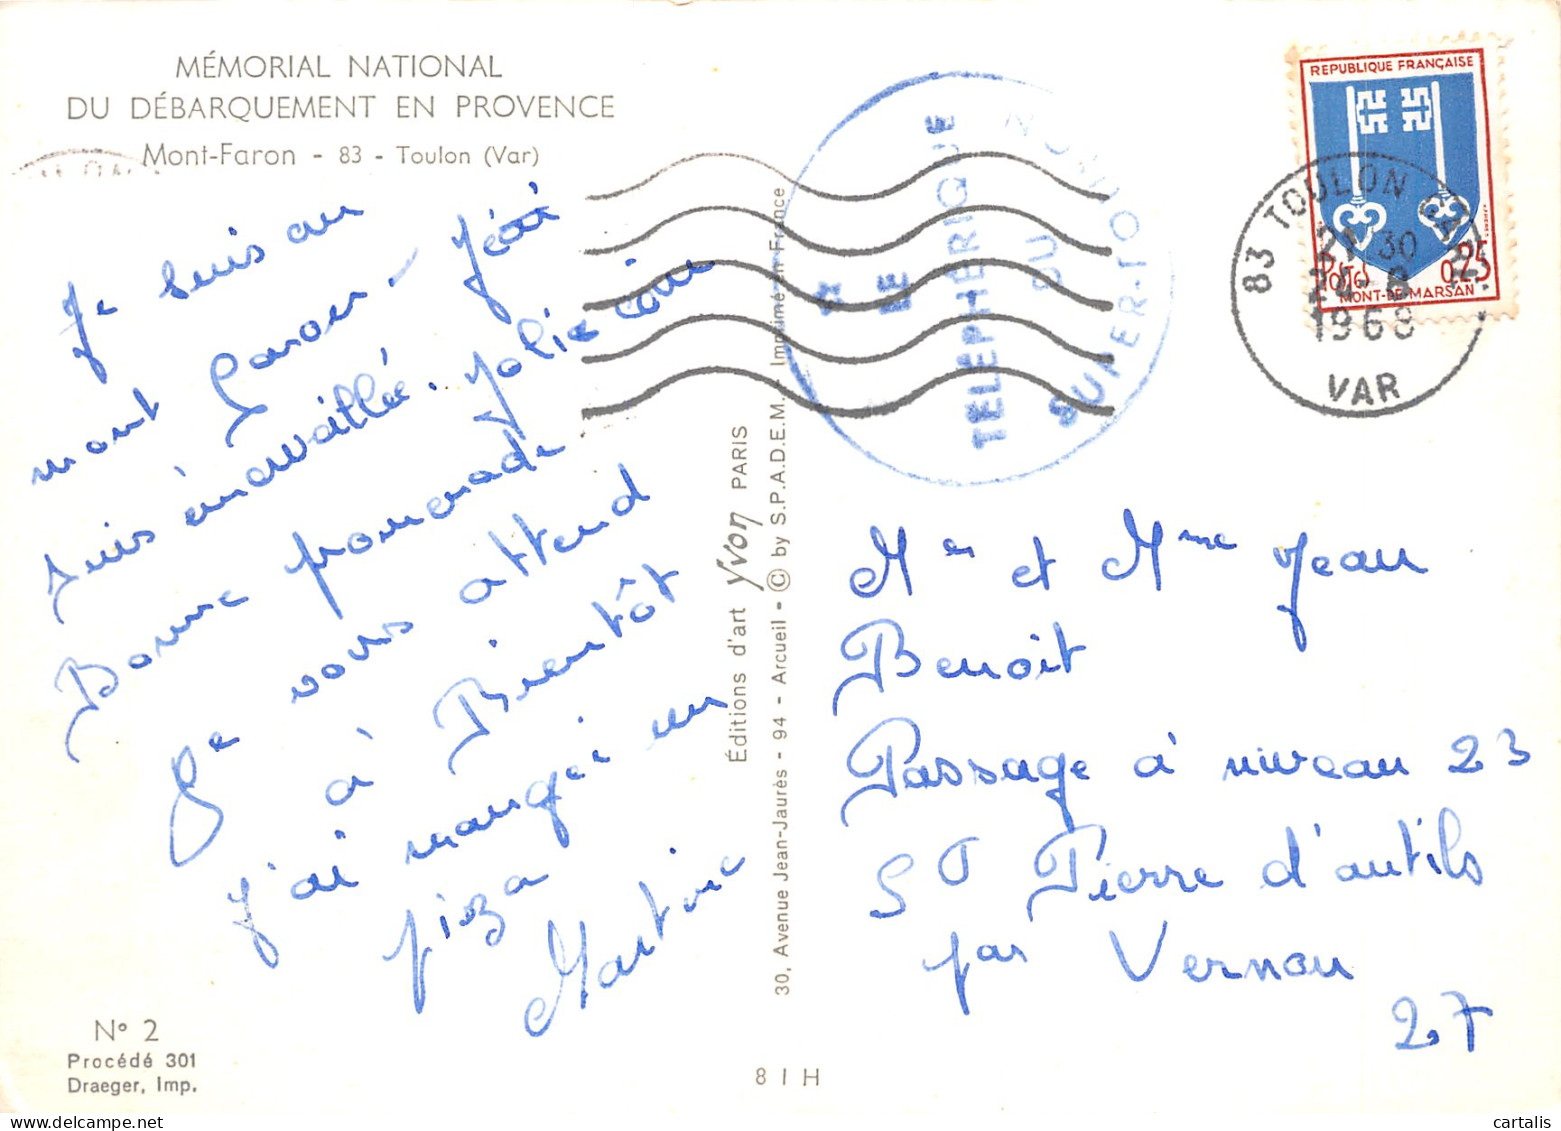 MÉMORIAL NATIONAL
DU DÉBARQUEMENT EN PROVENCE
Mont-Faron - 83 - Toulon (Var)
Je suis au
mont Faron. J'en
suis émerveillée. Jolie vue
Bonne promenade
Je vous attend
à Bientôt
j'ai mangée une
pizza
Martine
N° 2
Procédé 301
Draeger, Imp.
Éditions d'art Yvon PARIS
30, Avenue Jean-Jaurès - 94 - Arcueil - © by S.P.A.D.E.M. - Imprimé en France
8 I H
LE
TÉLÉPHÉRIQUE
DU
SUPER-TOULON
REPUBLIQUE FRANÇAISE
POSTES 0,25
MONT-DE-MARSAN
83 TOULON
21 30
24-8
1968
VAR
Mr et Mme Jean
Benoit
Passage à niveau 23
ST Pierre d'autils
par Vernon
27
cartalis